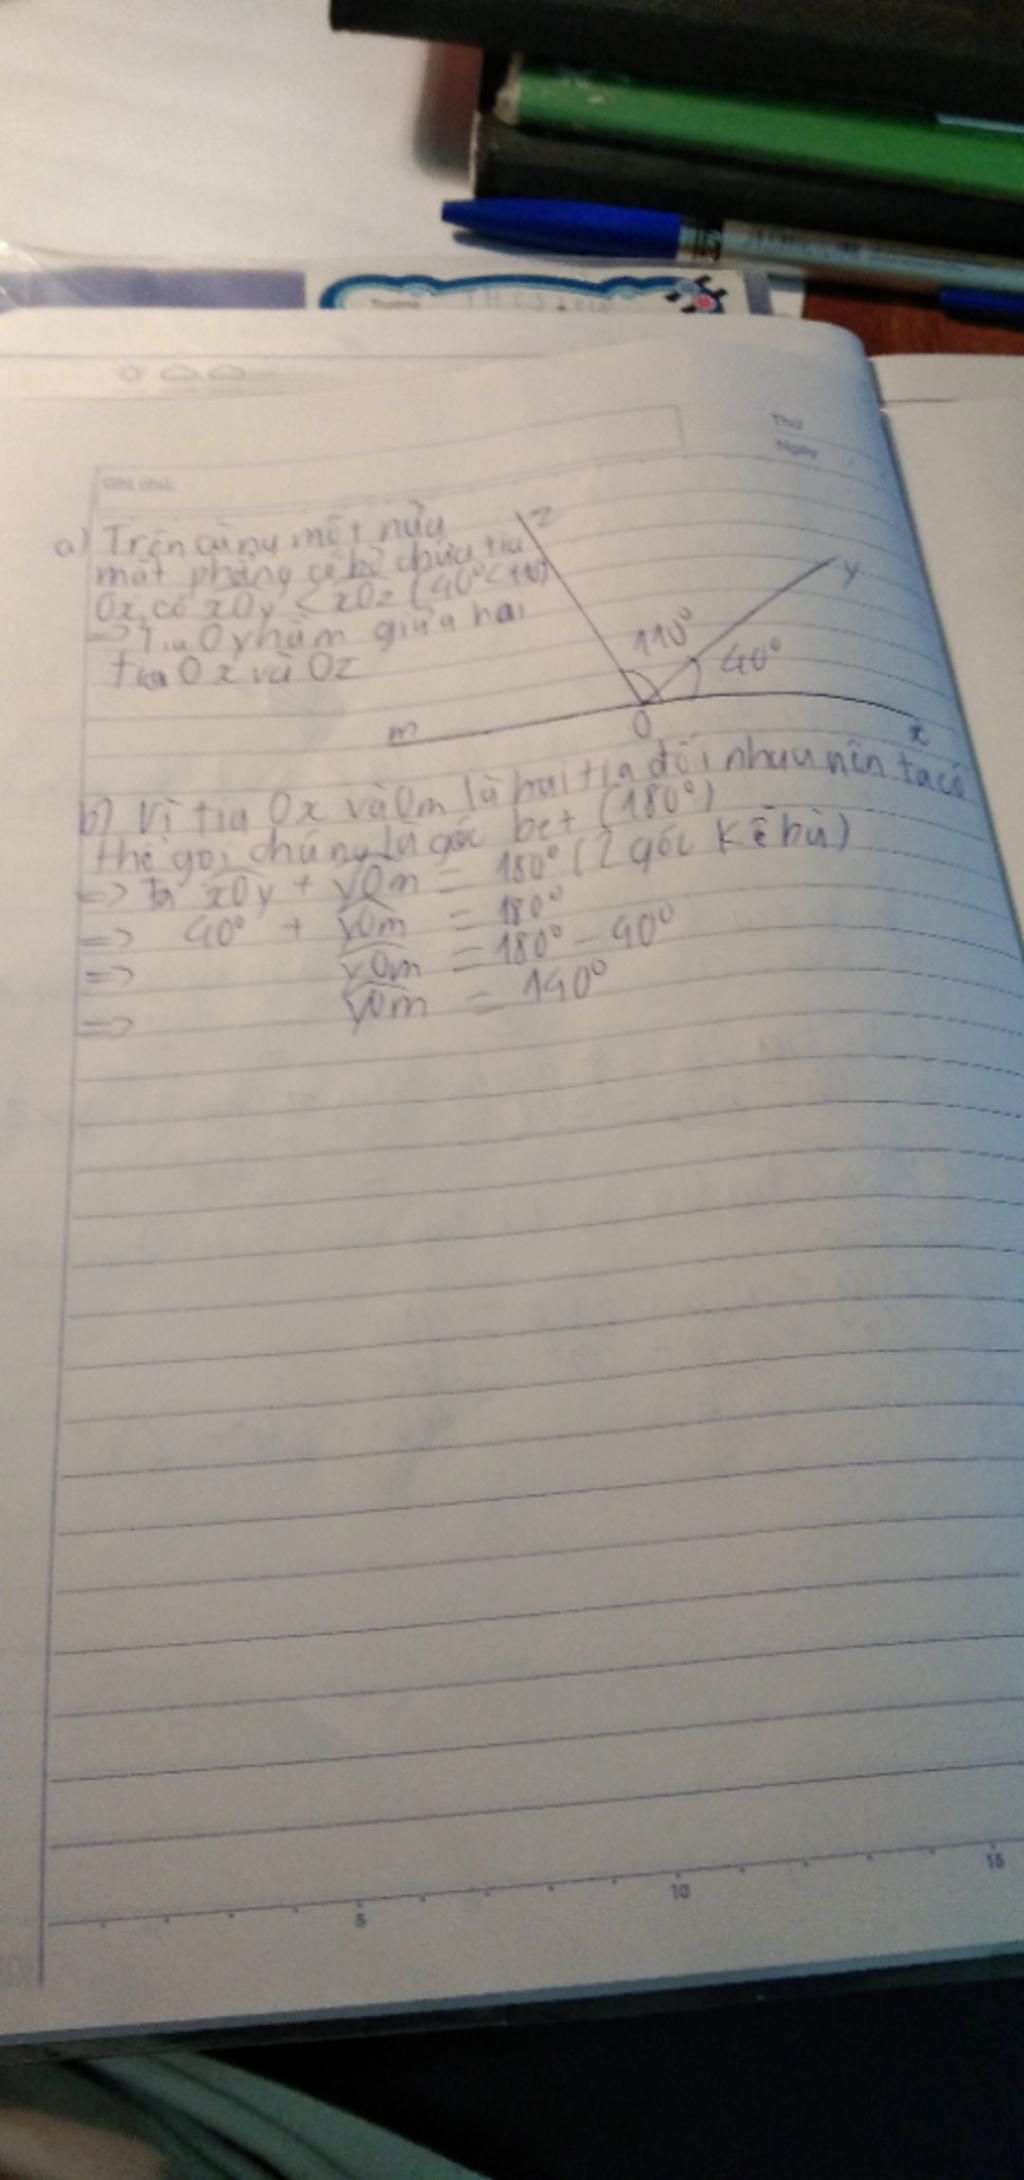 Trường THCS
Thứ
Ngày
Ghi chú:
a) Trên cùng một nửa
mặt phẳng có bờ chứa tia
Ox, có xOy < xOz (40° < 110°)
=> Tia Oy nằm giữa hai
tia Ox và Oz
z
y
110°
40°
m
O
x
b) Vì tia Ox và Om là hai tia đối nhau nên ta có
thể gọi chúng là góc bet (180°)
=> xOy + yOm = 180° (2 góc kề bù)
=> 40° + yOm = 180°
=> yOm = 180° - 40°
=> yOm = 140°
5
10
15